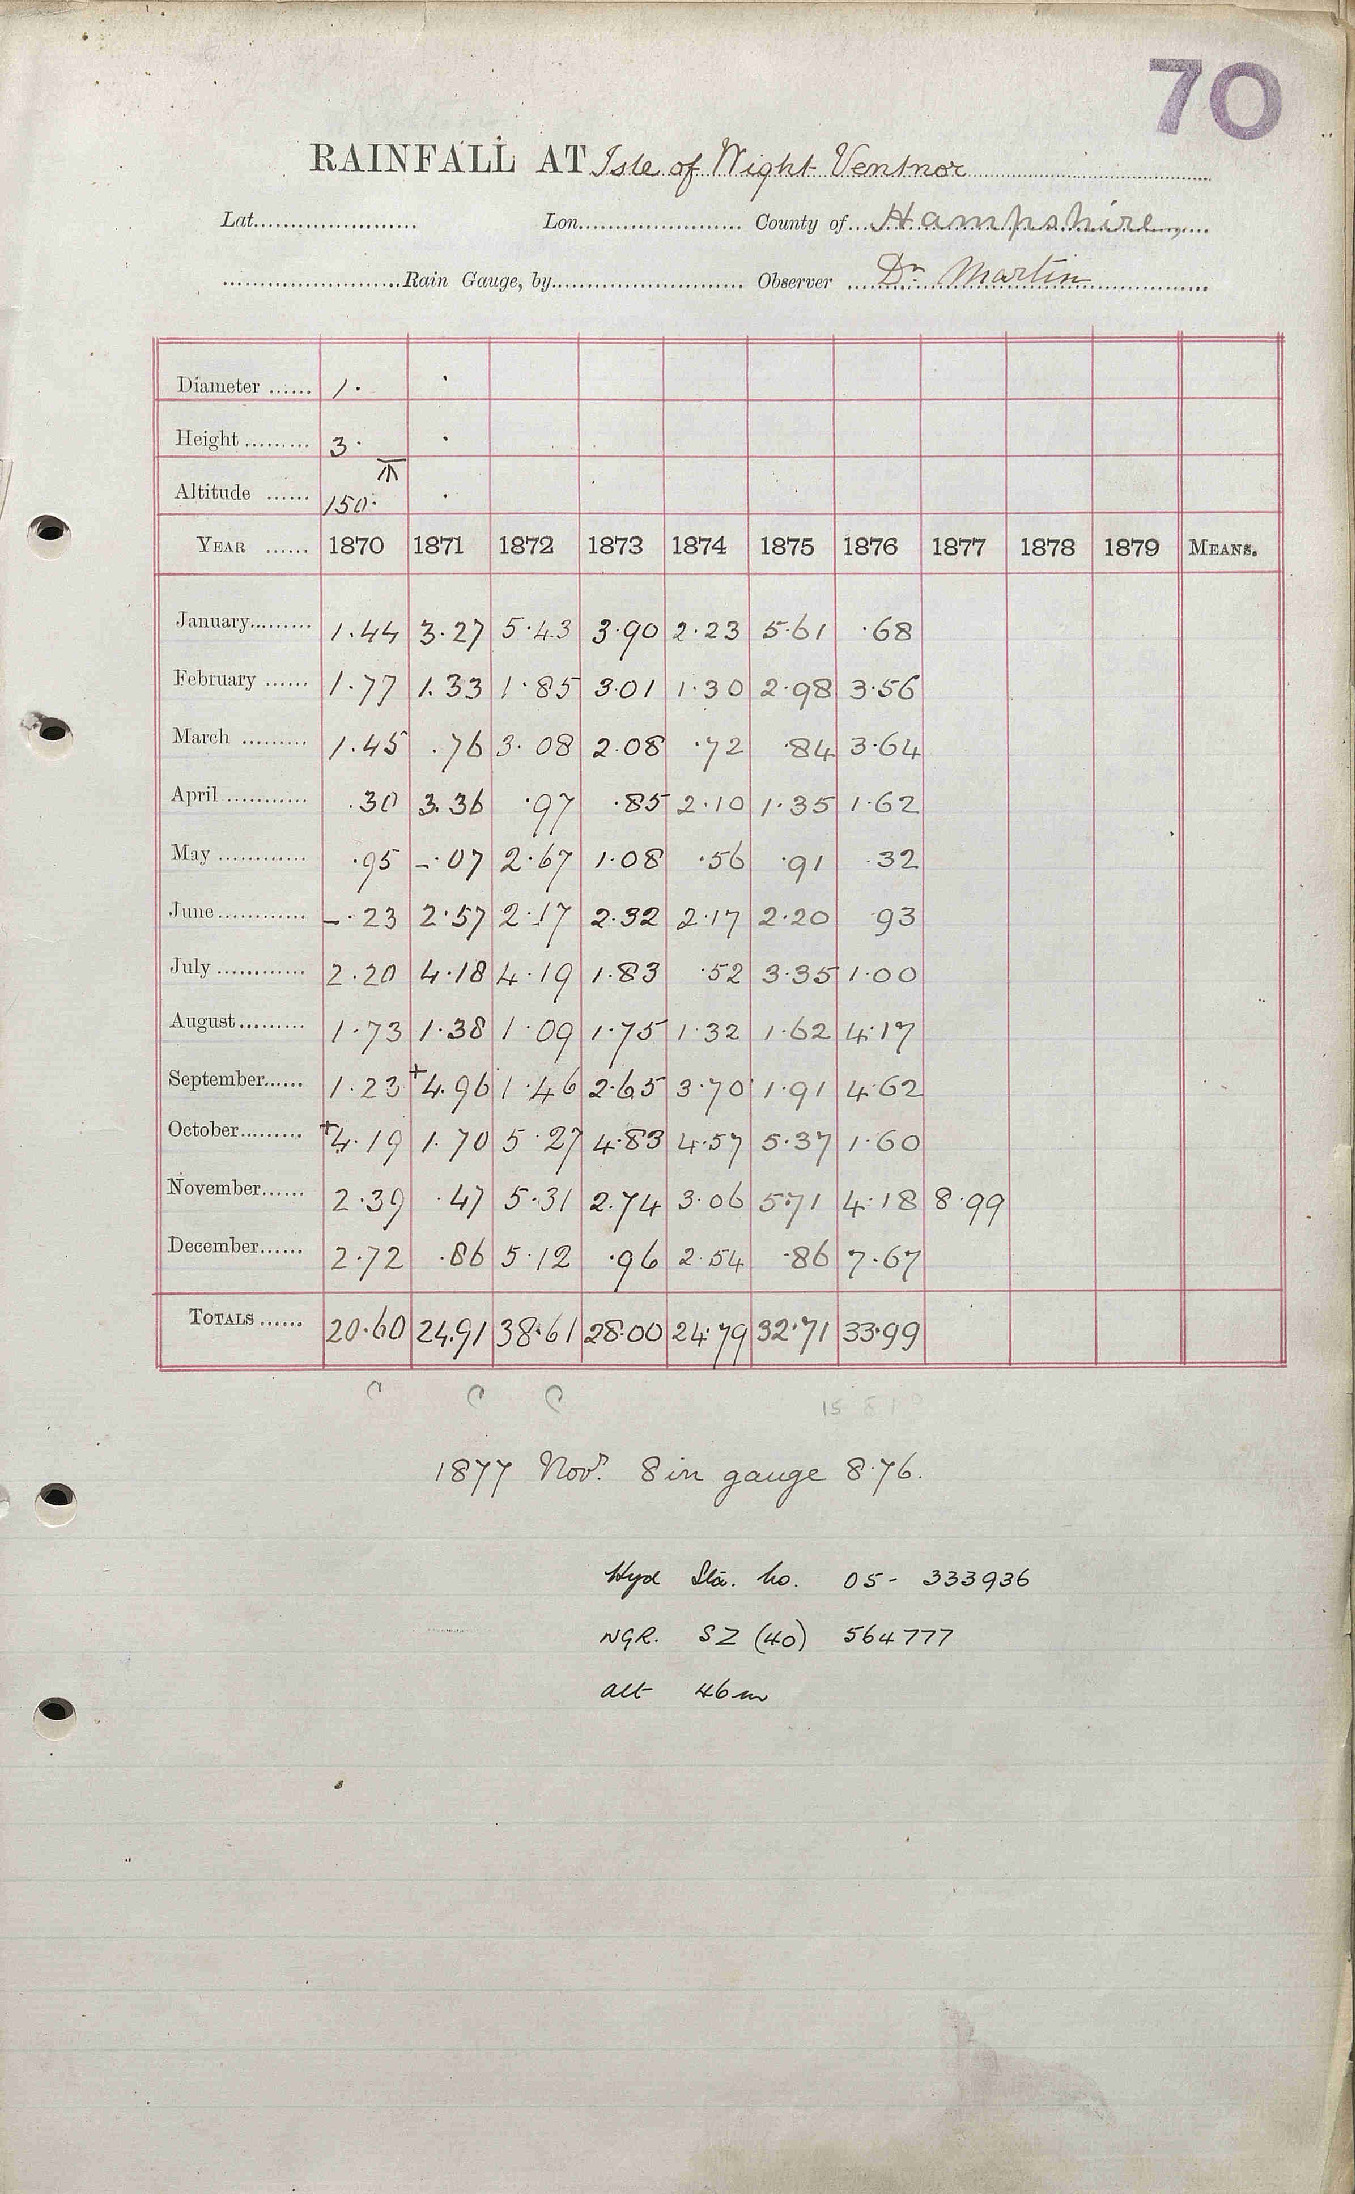 70
RAINFALL AT Isle of Wight Ventnor
Lat. Lon. County of Hampshire
Rain Gauge, by Observer Dr. Martin
Diameter 1.
Height 3.
Altitude 150.
YEAR 1870 1871 1872 1873 1874 1875 1876 1877 1878 1879 MEANS.
January 1.44 3.27 5.43 3.90 2.23 5.61 .68
February 1.77 1.33 1.85 3.01 1.30 2.98 3.56
March 1.45 .76 3.08 2.08 .72 .84 3.64
April .30 3.36 .97 .85 2.10 1.35 1.62
May .95 -.07 2.67 1.08 .56 .91 .32
June -.23 2.57 2.17 2.32 2.17 2.20 .93
July 2.20 4.18 4.19 1.83 .52 3.35 1.00
August 1.73 1.38 1.09 1.75 1.32 1.62 4.17
September 1.23 +4.96 1.46 2.65 3.70 1.91 4.62
October +4.19 1.70 5.27 4.83 4.57 5.37 1.60
November 2.39 .47 5.31 2.74 3.06 5.71 4.18 8.99
December 2.72 .86 5.12 .96 2.54 .86 7.67
TOTALS 20.60 24.91 38.61 28.00 24.79 32.71 33.99
C C C
1877 Novr. 8 in gauge 8.76.
Hyd Sta. No. 05- 333936
NGR. SZ (40) 564777
alt 46m